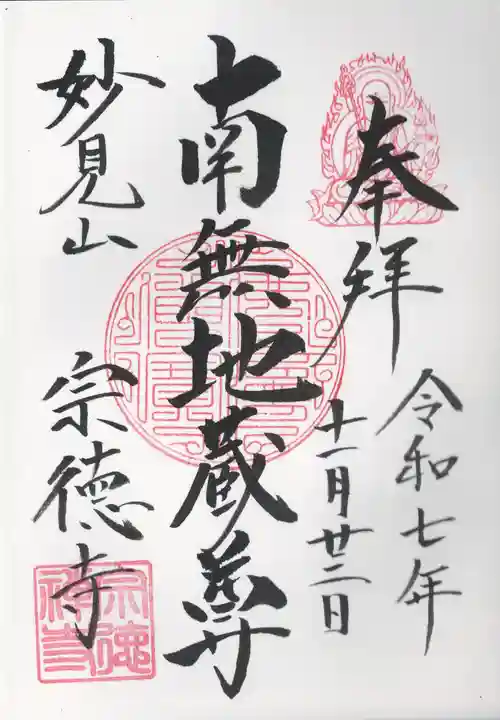 奉拝
令和七年
十一月廿二日
南無地蔵尊
妙見山
宗徳寺